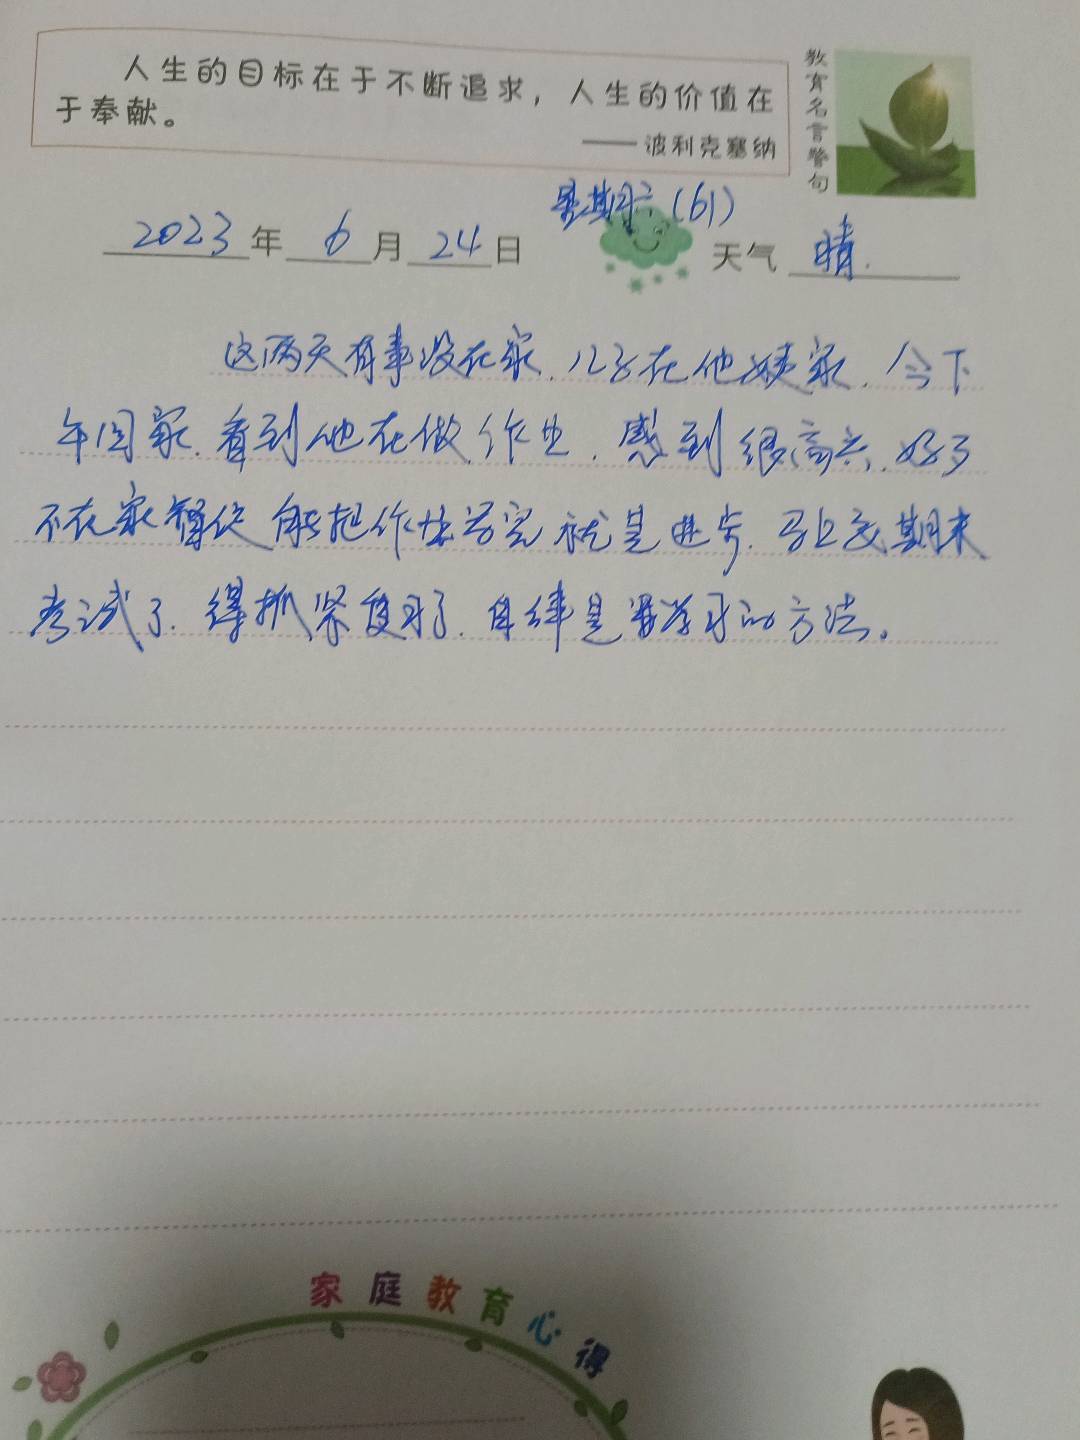 人生的目标在于不断追求，人生的价值在
于奉献。
——波利克塞纳
教育名言警句
星期六（61）
2023年6月24日 天气 晴.
这两天有事没在家.儿子在他姨家.今下
午回家.看到他在做作业.感到很高兴.
不在家 能把作业写完就是进步.马上 期末
考试了.得抓紧复习了.自律是 学习的方法。
家庭教育心得